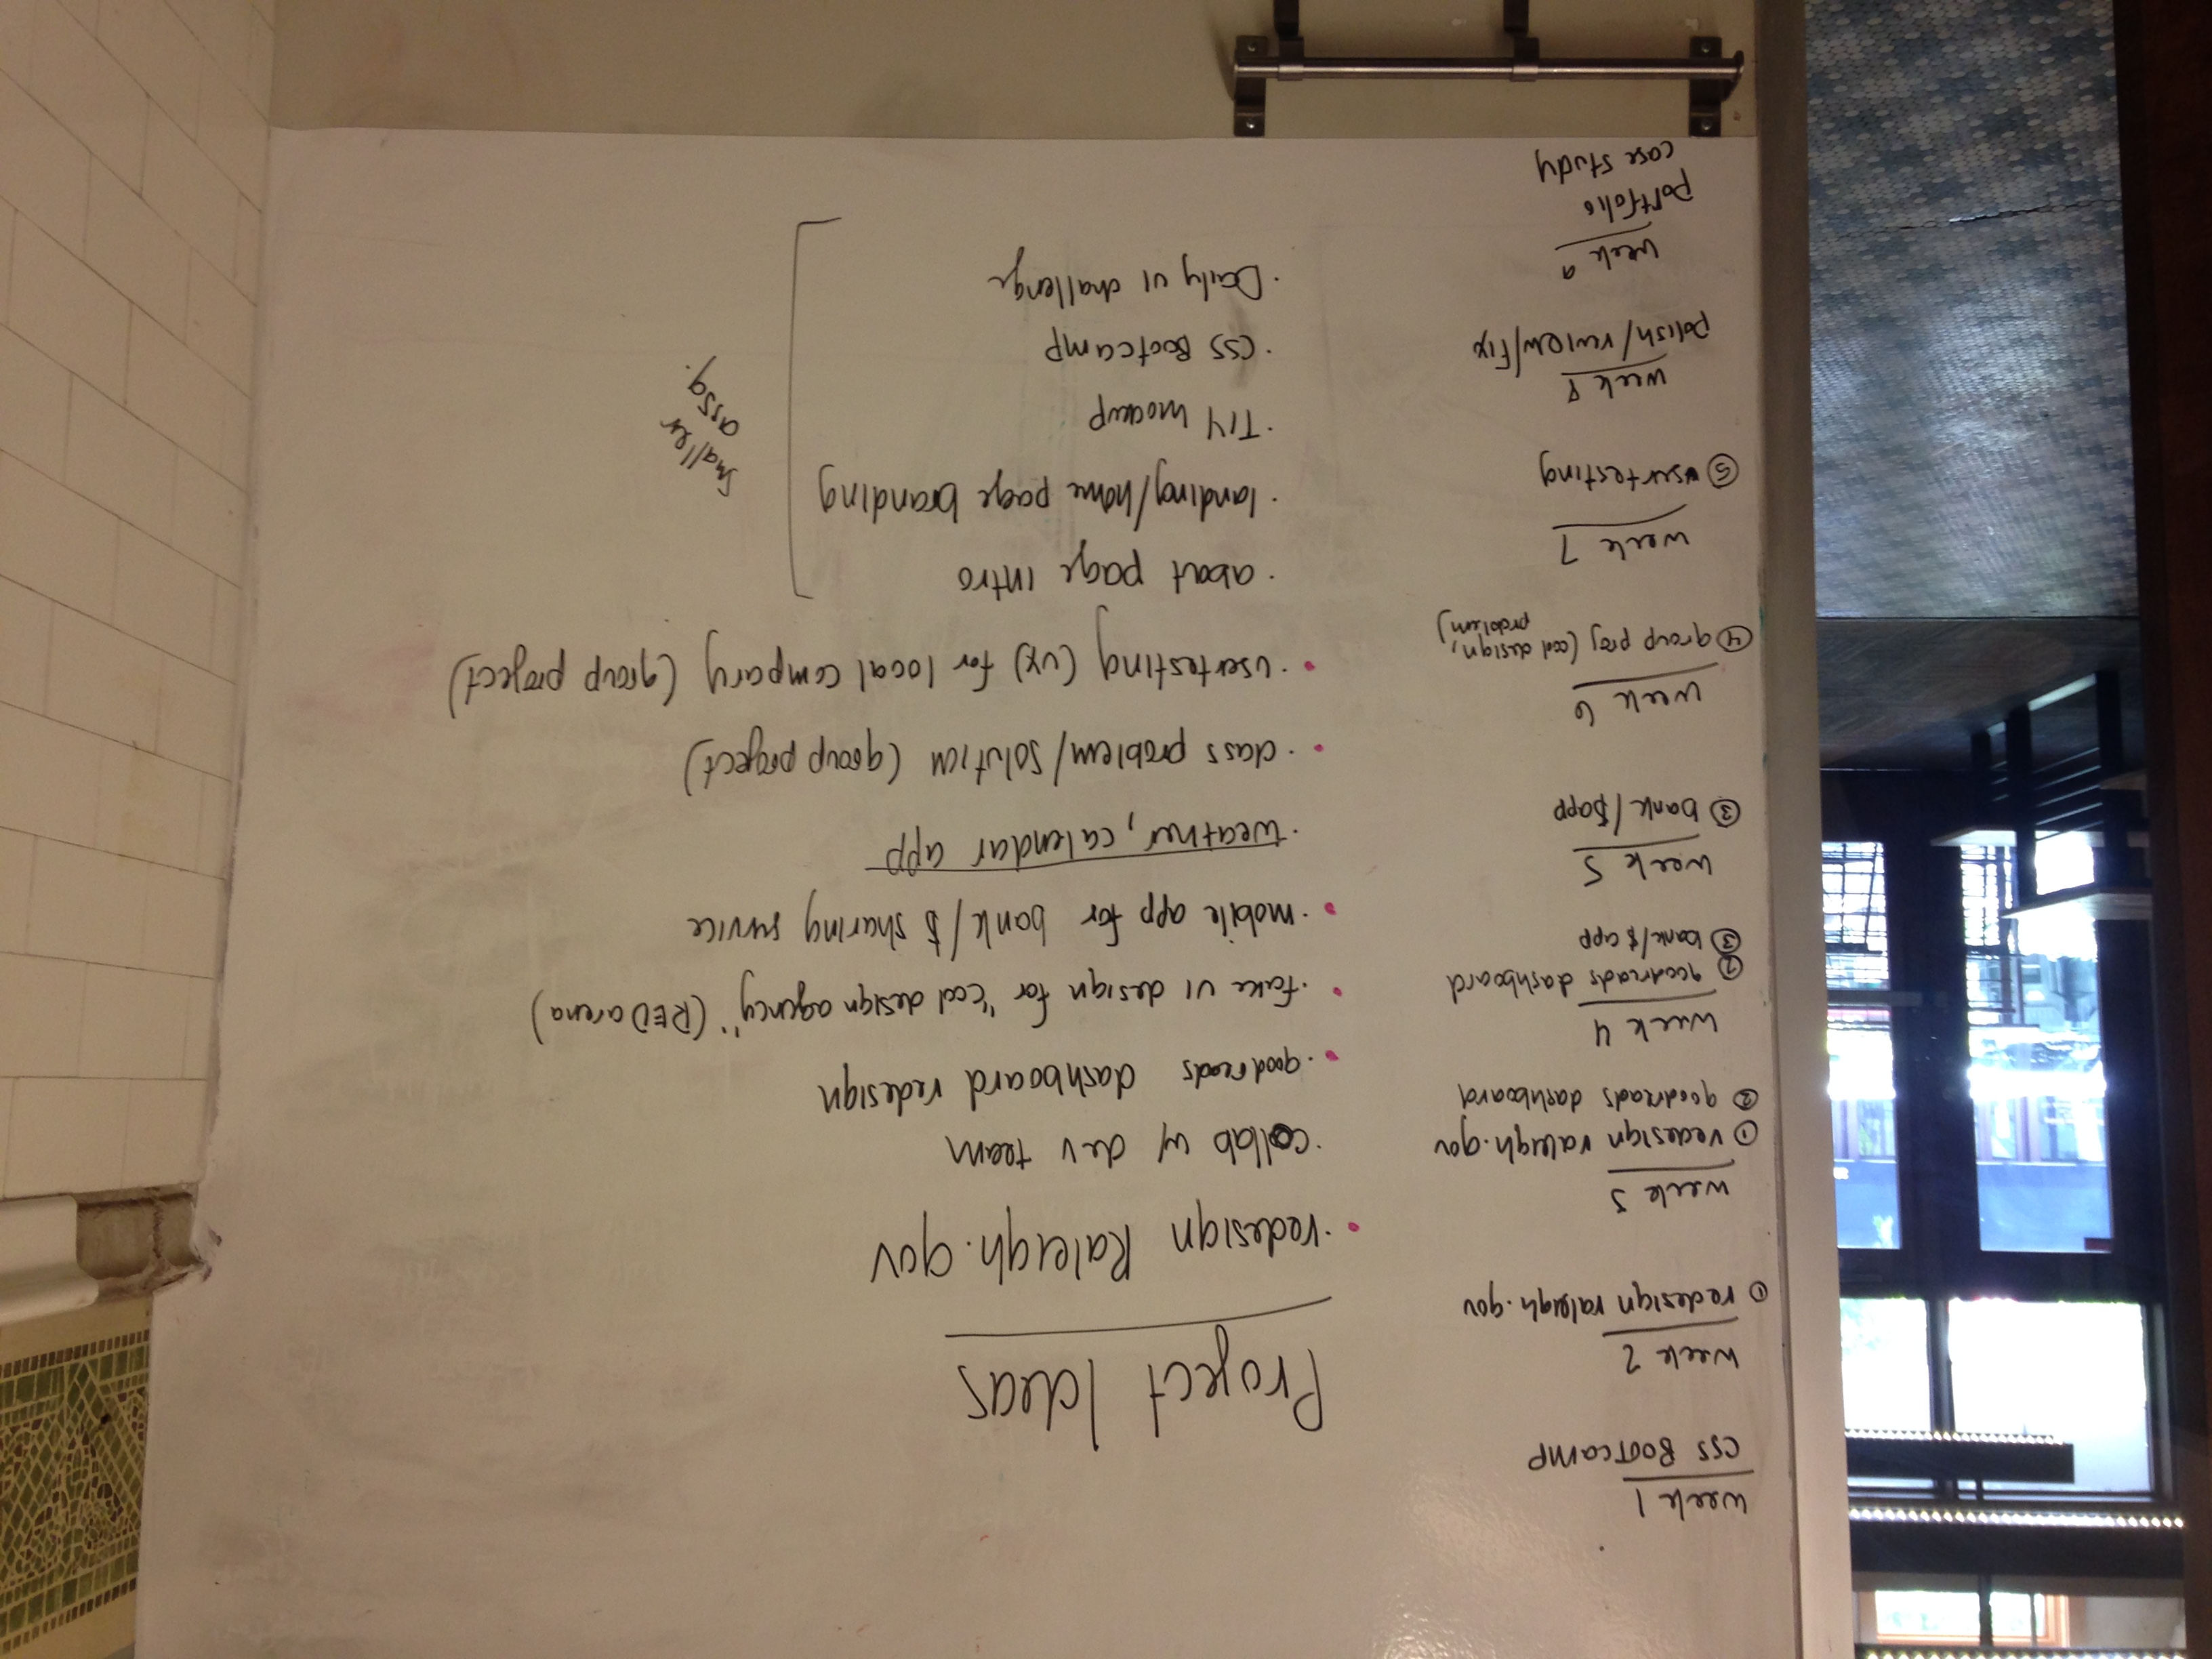 week 1
CSS Bootcamp
week 2
① redesign raleigh.gov
week 3
① redesign raleigh.gov
② goodreads dashboard
week 4
② goodreads dashboard
③ bank/$ app
week 5
③ bank/$app
week 6
④ group proj (cool design,
problem)
week 7
⑤ usertesting
week 8
polish/review/fix
week 9
portfolio
case study
Project Ideas
· redesign Raleigh.gov
· collab w/ dev team
· goodreads dashboard redesign
· fake UI design for "cool design agency" (RED arena)
· mobile app for bank/$ sharing service
· weather, calendar app
· class problem/solution (group project)
· usertesting (UX) for local company (group project)
· about page intro
· landing/home page branding
· TIY mockup
· CSS Bootcamp
· Daily UI challenge
smaller
assg.